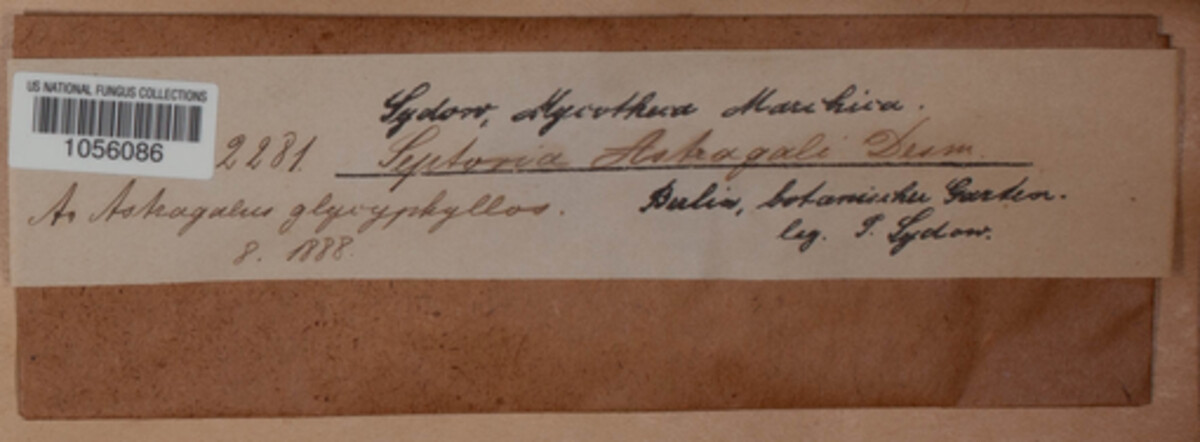 US NATIONAL FUNGUS COLLECTIONS
1056086
Sydow, Mycotheca Marchica.
2281. Septoria Astragali Desm.
A. Astragalus glycyphyllos.
8. 1888.
Berlin, botanischer Garten.
leg. P. Sydow.